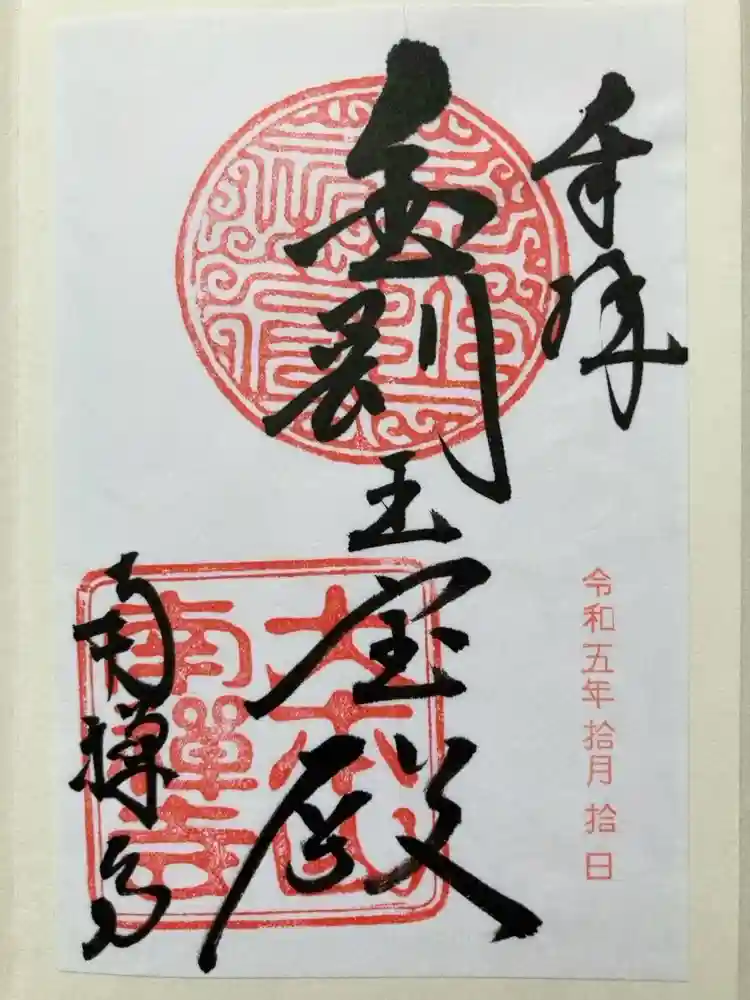 奉拝
金剛王宝殿
南禅寺
大本山
南禪寺
令和五年拾月拾日